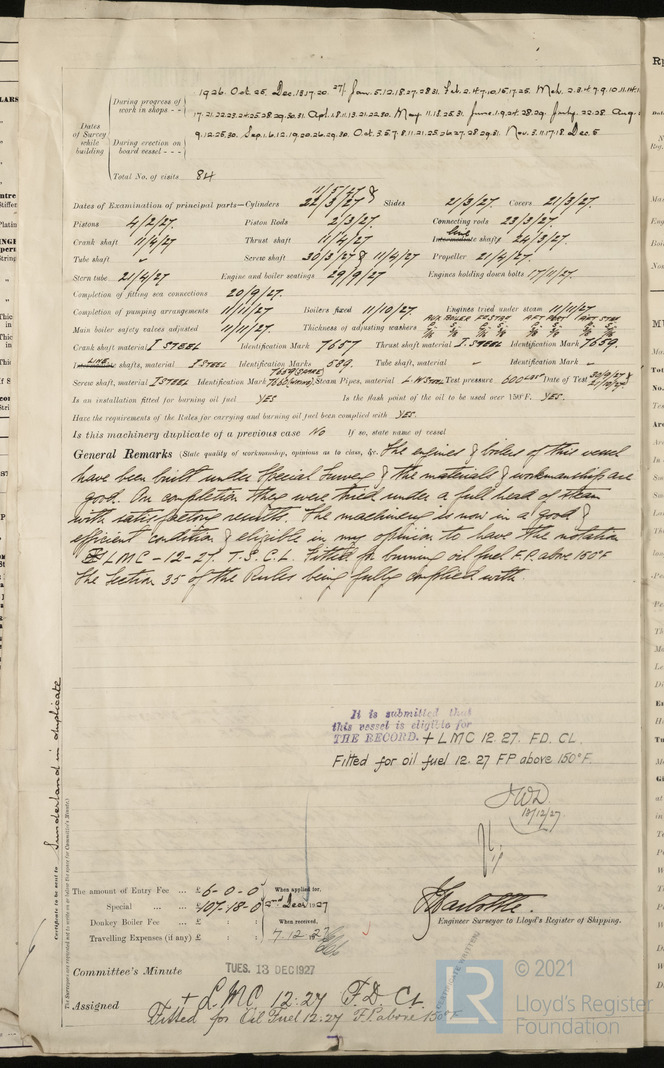 1926. Oct. 25. Dec. 13.17.20. 27/ Jan. 5.12.18.27.28.31. Feb. 2.4.7.10.15.17.25. Mch. 2.3.4.7.9.10.11.14.
During progress of work in shops - -
17.21.22.23.24.25.28.29.30.31. Apl. 1.8.11.13.21.22.30. May 11.18.25.31. June 1.9.24.28.29. July. 22.28. Aug.
Dates of Survey while building
During erection on board vessel - - -
9.12.25.30. Sep. 1.6.12.19.20.26.29.30. Oct. 3.5.7.8.11.21.25.26.27.28.29.31. Nov. 3.11.17.18 Dec. 5
Total No. of visits 84
Dates of Examination of principal parts—Cylinders 22/3/27 & Slides 21/3/27. Covers 21/3/27.
Pistons 4/2/27. Piston Rods 2/3/27. Connecting rods 23/3/27.
Crank shaft 11/4/27 Thrust shaft 11/4/27 Line shafts 24/3/27.
Tube shaft Screw shaft 30/3/27 & 11/4/27 Propeller 21/4/27
Stern tube 21/4/27 Engine and boiler seatings 29/9/27 Engines holding down bolts 17/11/27.
Completion of fitting sea connections 20/9/27.
Completion of pumping arrangements 11/11/27 Boilers fixed 11/10/27. Engines tried under steam 11/11/27
Main boiler safety valves adjusted 11/11/27. Thickness of adjusting washers
Crank shaft material I STEEL Identification Mark 7657 Thrust shaft material I. STEEL Identification Mark 7659.
LINE shafts, material I STEEL Identification Marks 589. Tube shaft, material - Identification Mark -
Screw shaft, material I STEEL Identification Mark 7660 Steam Pipes, material Test pressure 600 Date of Test 30/9/27 &
Is an installation fitted for burning oil fuel YES Is the flash point of the oil to be used over 150°F. YES.
Have the requirements of the Rules for carrying and burning oil fuel been complied with YES.
Is this machinery duplicate of a previous case NO If so, state name of vessel
General Remarks (State quality of workmanship, opinions as to class, &c. The engines & boilers of this vessel
have been built under Special Survey & the materials & workmanship are
good. On completion they were tried under a full head of steam
with satisfactory results. The machinery is now in a good &
efficient condition & eligible in my opinion to have the notation
LMC - 12-27. T.S.C.L. Fitted for burning oil fuel F.P. above 150°F
the Section 35 of the Rules being fully complied with.
It is submitted that
this vessel is eligible for
THE RECORD. + LMC 12.27. FD. CL.
Fitted for oil fuel 12.27 FP above 150°F.
JWD
12/12/27
Certificate to be sent to Sunderland in duplicate
The amount of Entry Fee ... £ 6-0-0 When applied for,
Special ... £ 107-18-0 Dec 1927
Donkey Boiler Fee ... £ : : When received,
Travelling Expenses (if any) £ : : 7.12.27
Engineer Surveyor to Lloyd's Register of Shipping.
Committee's Minute TUES. 13 DEC 1927
Assigned + LMC 12.27 F.D. CL.
Fitted for Oil Fuel 12.27 F.P. above 150°F
© 2021
Lloyd's Register
Foundation
LR